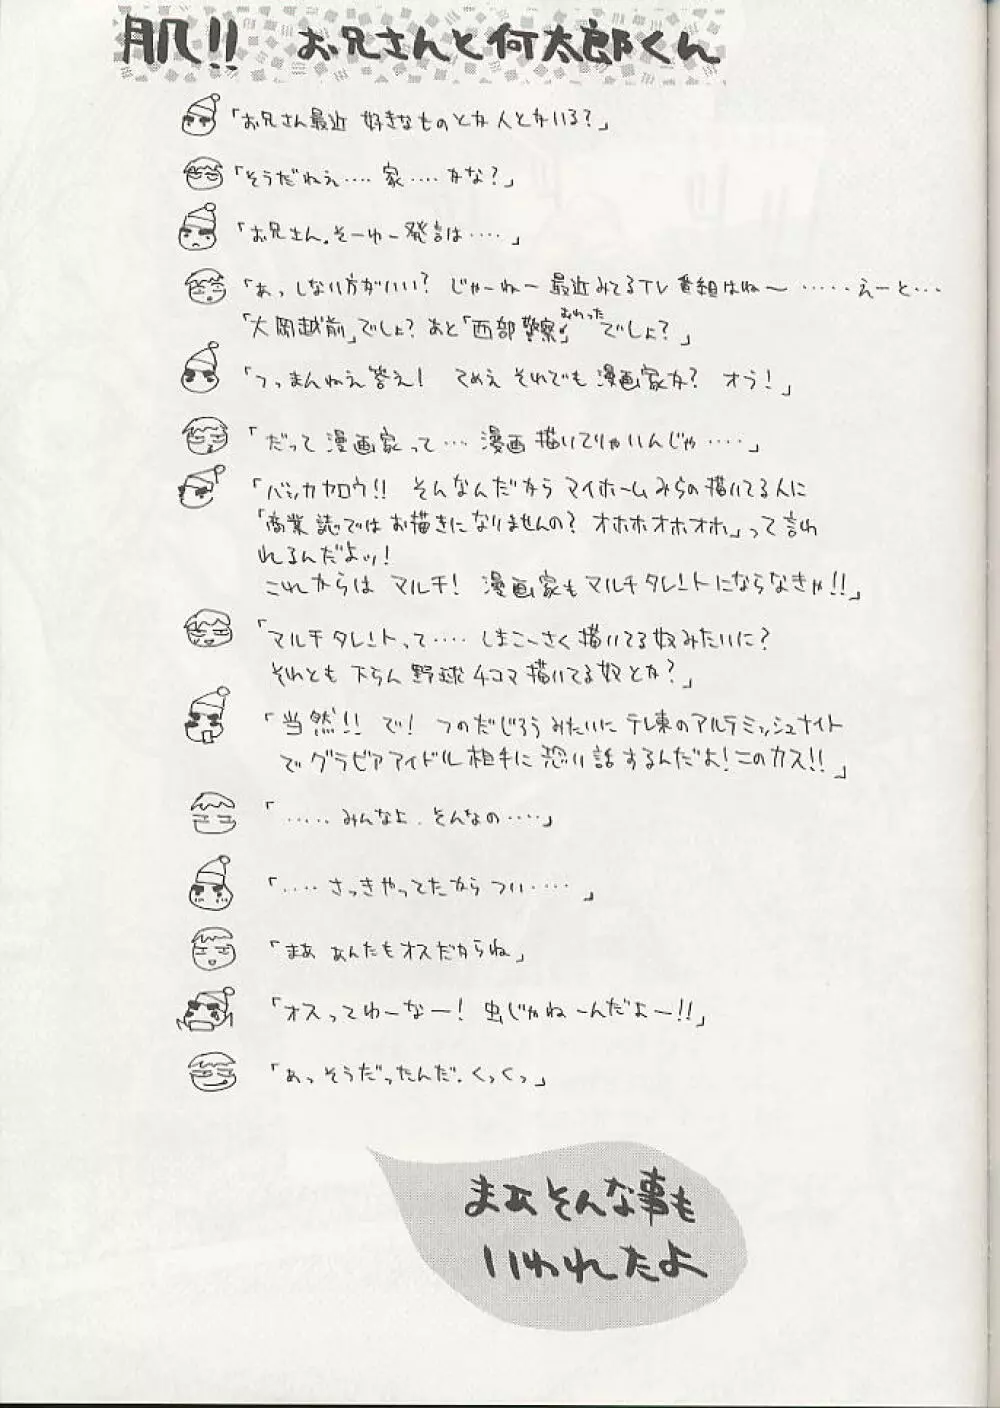 肌!! お兄さんと何太郎くん
「お兄さん最近 好きなものとか人とかいる?」
「そうだねえ‥‥ 家‥‥かな?」
「お兄さん。そーゆー発言は‥‥」
「あっしない方がいい? じゃーねー 最近みてるTV番組はね〜 ‥‥‥えーと‥‥
「大岡越前」でしょ? あと「西部警察」でしょ?」
おわった
「つっまんねえ答え! てめえ それでも 漫画家か? オラ!」
「だって 漫画家って‥‥ 漫画 描いてりゃいんじゃ‥‥‥」
「バッカヤロウ!! そんなんだから マイホームみらの描いてる人に
「商業誌ではお描きになりませんの? オホホオホオホ」って言わ
れるんだよッ!
これからは マルチ! 漫画家もマルチタレントにならなきゃ!!」
「マルチタレントって‥‥ しまこーさく描いてる奴みたいに?
それとも 下らん 野球4コマ描いてる奴とか?」
「当然!! で! つのだじろうみたいに テレ東のアルテミッシュナイト
でグラビアアイドル相手に恐い話するんだよ!このカス!!」
「‥‥‥みんなよ、そんなの‥‥」
「‥‥さっきやってたから つい‥‥‥」
「まあ あんたもオスだからね」
「オスってゆーなー! 虫じゃねーんだよー!!」
「あっそうだったんだ。くっくっ」
まあそんな事も
いわれたよ